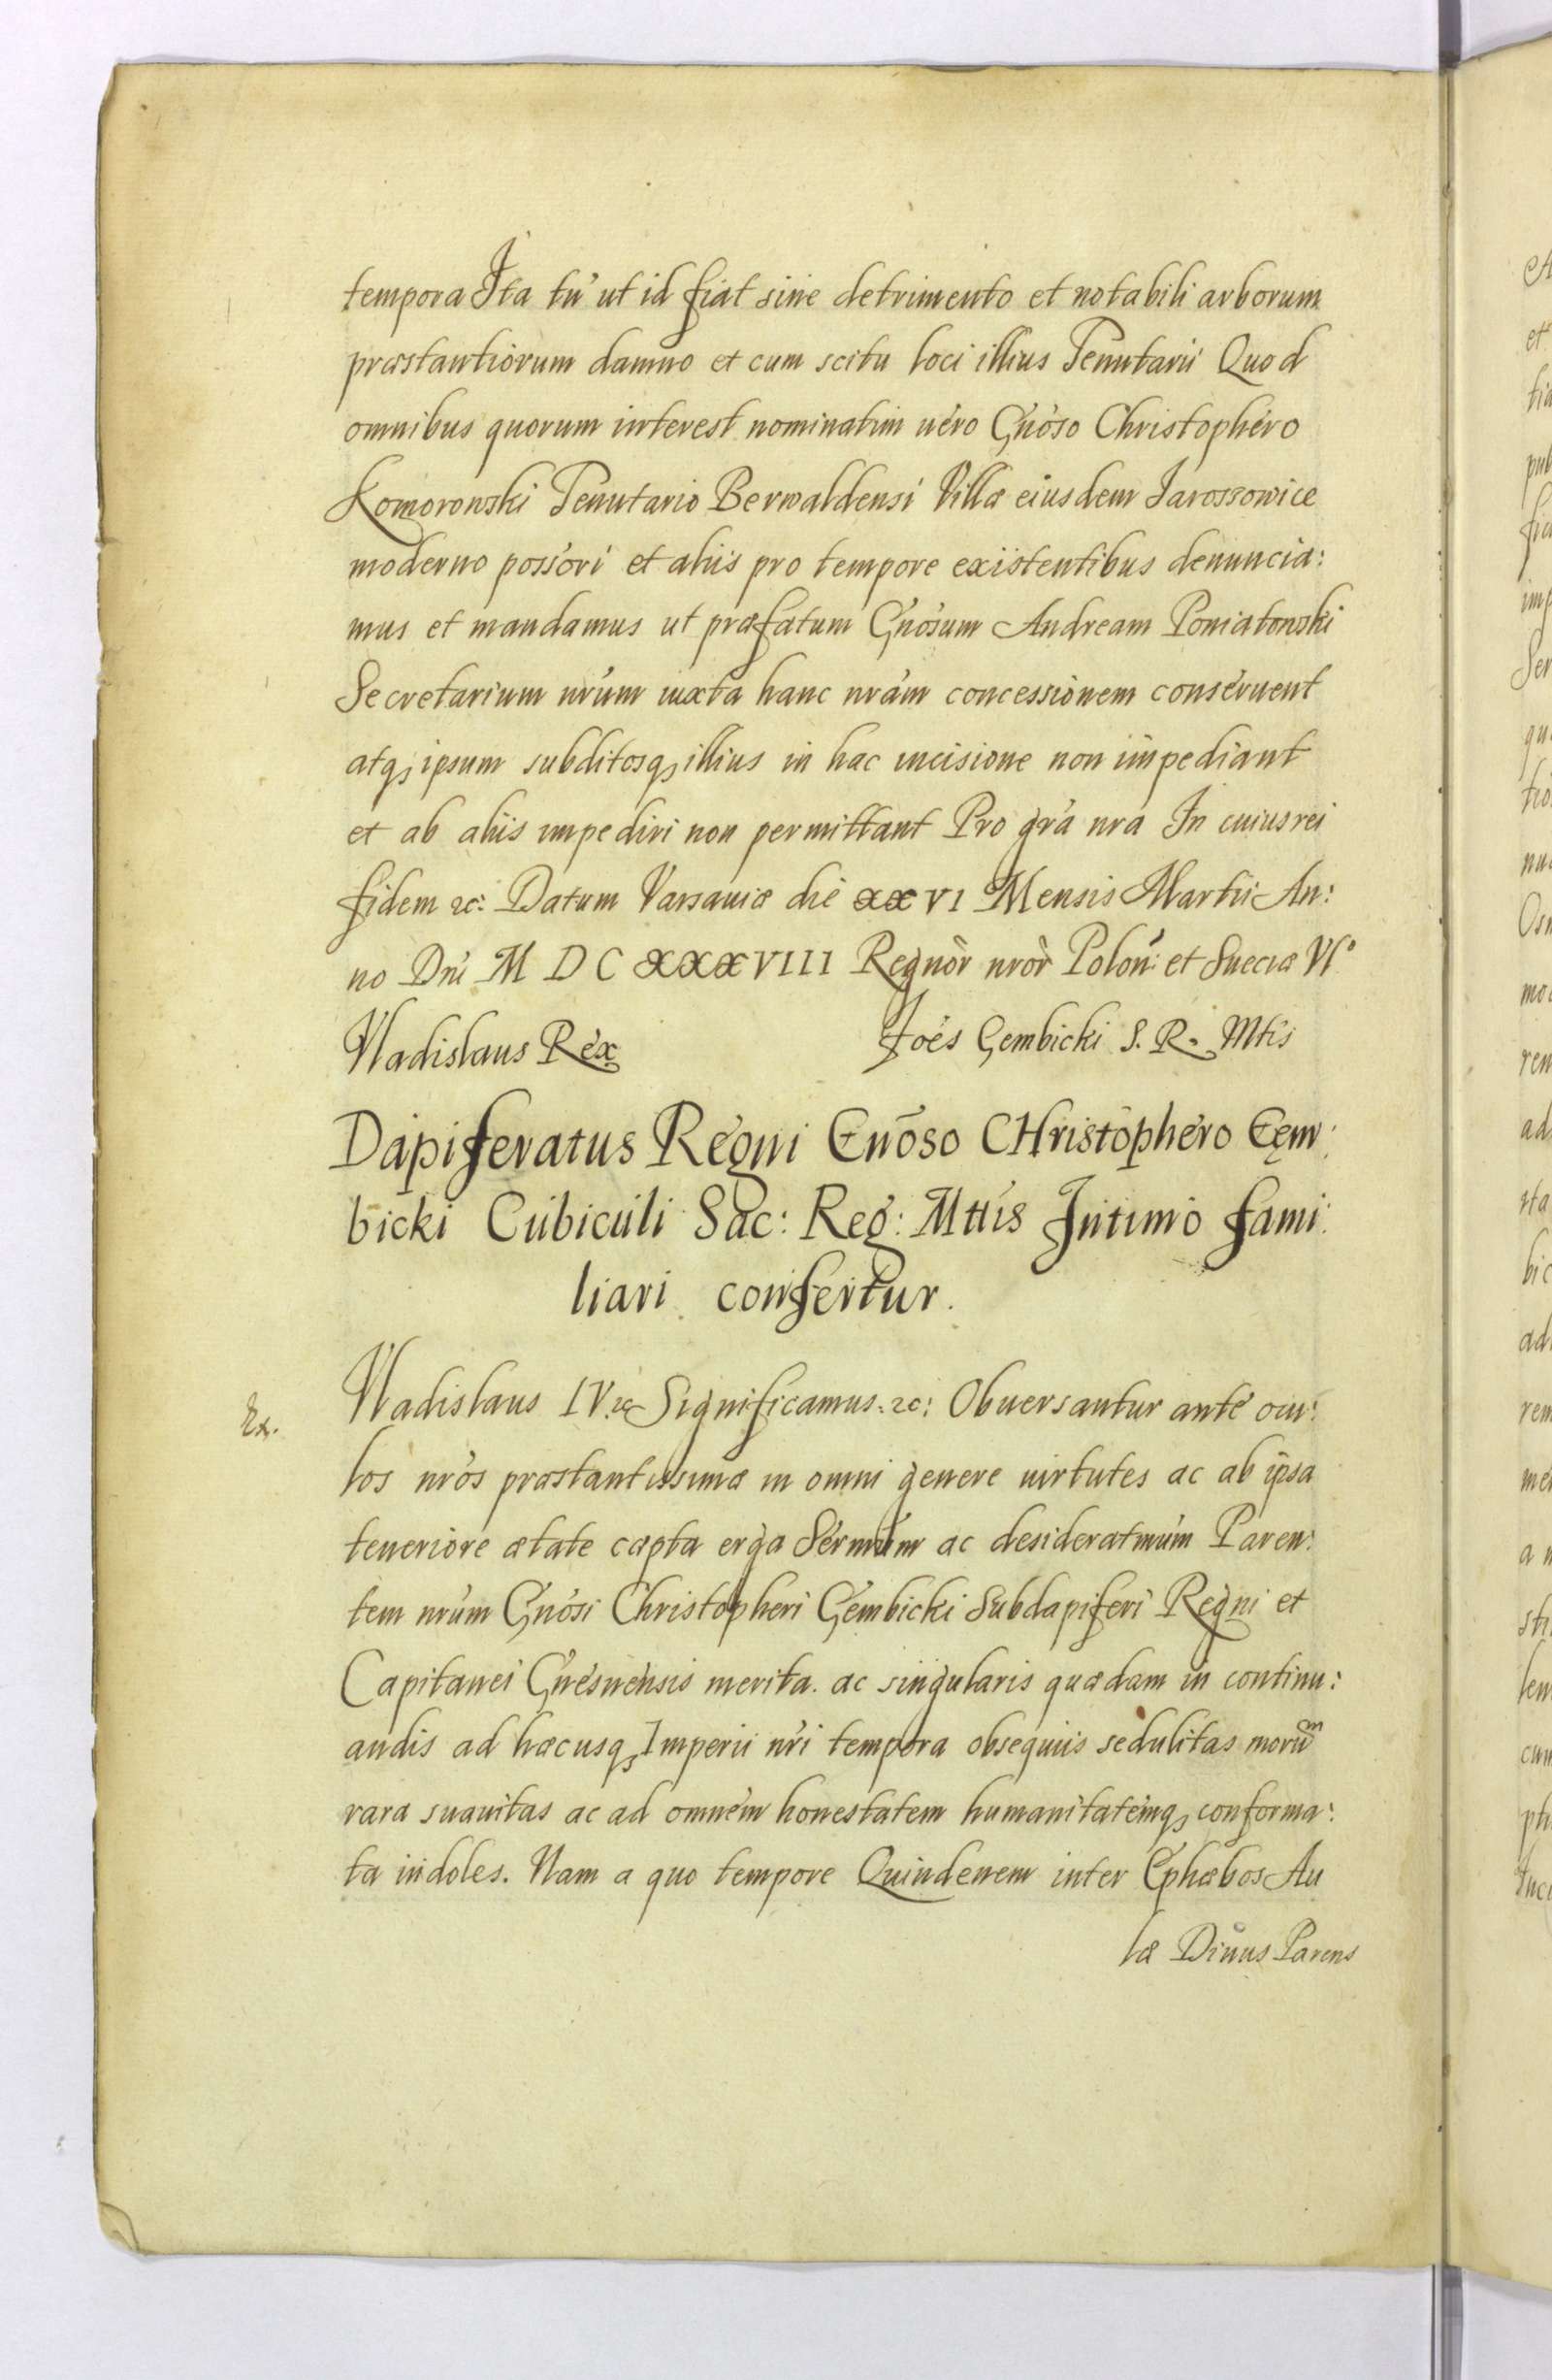 tempora Ita tn̄ ut id fiat sine detrimento et notabili arborum
præstantiorum damno et cum scitu loci illius Tenutarii Quod
omnibus quorum interest nominatim uero Gnōso Christophero
Komorowski Tenutario Berwaldensi Villæ eiusdem Jarossowice
moderno possōri et aliis pro tempore existentibus denuncia:
mus et mandamus ut præfatum Gnōsum Andream Poniatowski
Secretarium nrūm iuxta hanc nrām concessionem conseruent
atq₃ ipsum subditosq₃ illius in hac incisione non impediant
et ab aliis impediri non permittant Pro grā nra In cuius rei
fidem ꝛc: Datum Varsauiæ die XXVI Mensis Martii An:
no Dnī M DC XXXVIII Regnor̄ nror̄ Polon̄: et Sueciæ VI°
Vladislaus Rex
Joēs Gembicki S. R. Mtis
Dapiferatus Regni Gnōso CHristophero Gęm:
bicki Cubiculi Sac: Reg: Mttis Intimo fami:
liari confertur.
Ex.
Vladislaus IV. ꝛc Significamus. ꝛc: Obuersantur ante ocu:
los nrōs præstantissimæ in omni genere uirtutes ac ab ipsa
teneriore ætate cæpta erga Sermūm ac desideratmūm Paren:
tem nrūm Gnōsi Christopheri Gembicki Subdapiferi Regni et
Capitanei Gnesnensis merita. ac singularis quædam in continu:
andis ad hæcusq₃ Imperii nrī tempora obsequiis sedulitas morūm
rara suauitas ac ad omnem honestatem humanitatemq₃ conforma:
ta indoles. Nam a quo tempore Quindenem inter Ephæbos Au
læ Diuus Parens